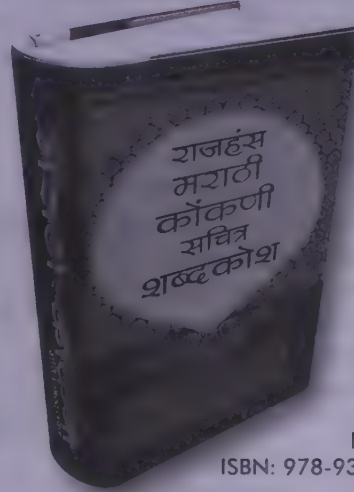 राजहंस
मराठी
कोंकणी
सचित्र
शब्दकोश
ISBN: 978-93